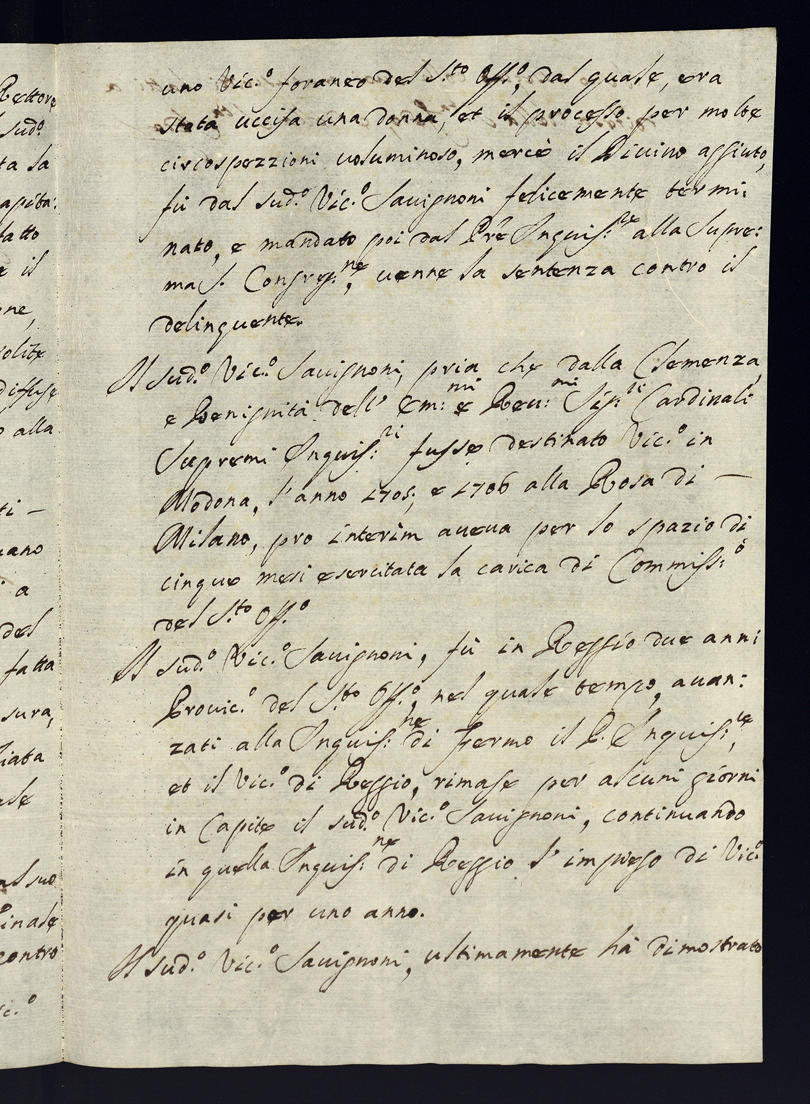 uno Vic.º foraneo del S.to Off.º, dal quale, era
stata uccisa una donna, et il processo per molte
circospezzioni voluminoso, mercè il Divino aggiuto,
fù dal sud.º Vic.º Savignoni felicemente termi:
nato, e mandato poi dal Pre Inquis:re alla Supre:
ma S. Congreg.ne, venne la sentenza contro il
delinquente.
Il sud.º Vic.º Savignoni, pria che dalla Clemenza,
e Benignità dell' Em:mi e Rev:mi Sig:ri Cardinali
Supremi Inquis:ri fusse destinato Vic.º in
Modona, l'anno 1705, e 1706 alla Rosa di —
Milano, pro interim aveva per lo spazio di
cinque mesi esercitata la carica di Commiss:º
del S.to Off.º
Il sud.º Vic.º Savignoni, fù in Reggio due anni
Provic.º del S.to Off.º, nel quale tempo, avan:
zati alla Inquis:ne di Fermo il P. Inquis:re,
et il Vic.º di Reggio, rimase per alcuni giorni
in Capite il sud.º Vic.º Savignoni, continuando
in quella Inquis:ne di Reggio l'impiego di Vic.º
quasi per uno anno.
Il sud.º Vic.º Savignoni, ultimamente hà dimostrato
Rettore
sud.º
ta la
apita:
fatto
e il
one,
solite
diffuse
o alla
ti —
vano
a
del
fatta
sura,
ziata
ale
nel suo
inale
contro
ic.º